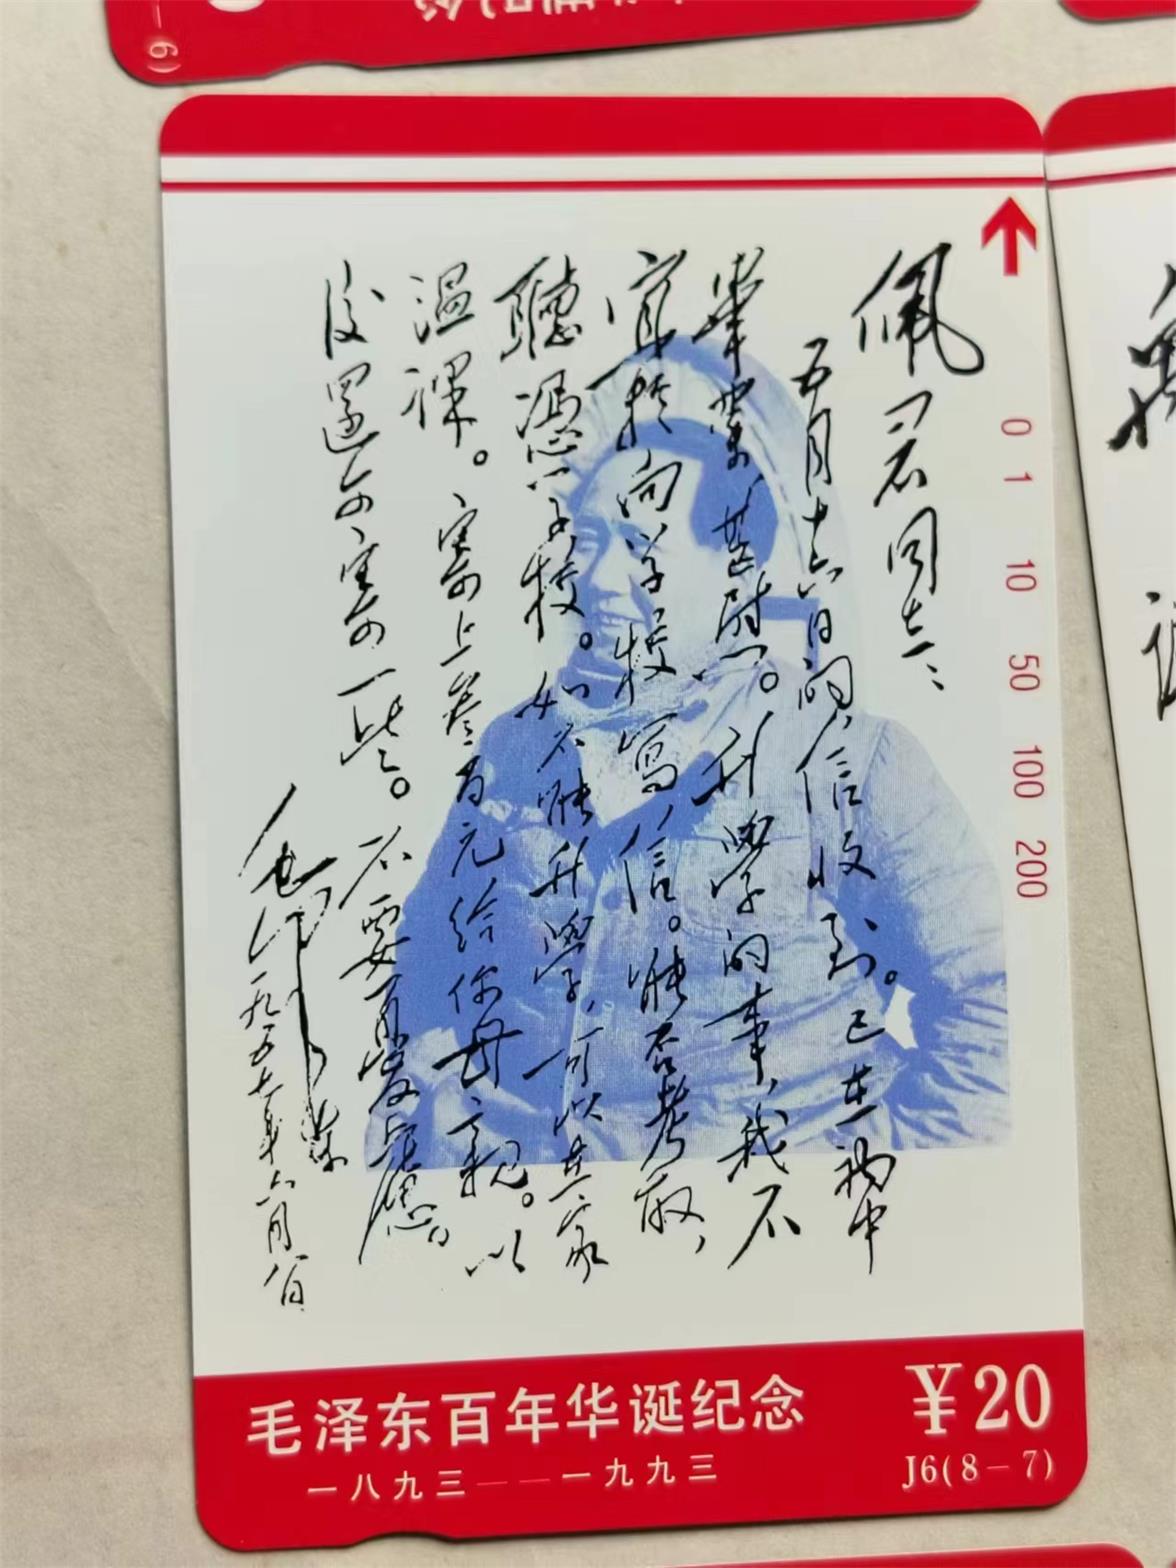 佩君同志：
五月十六日的信收到。已在初中
毕业，甚慰。升學的事，我不
宜于向学校写信。能否考取，
聽憑学校。如不能升學，可以在家
温课。寄上叁百元给你母亲。以
后还可寄一些。不要有顾虑。
毛泽东
一九五七年六月八日
0 1 10 50 100 200
毛泽东百年华诞纪念
一八九三——一九九三
¥20
J6(8-7)